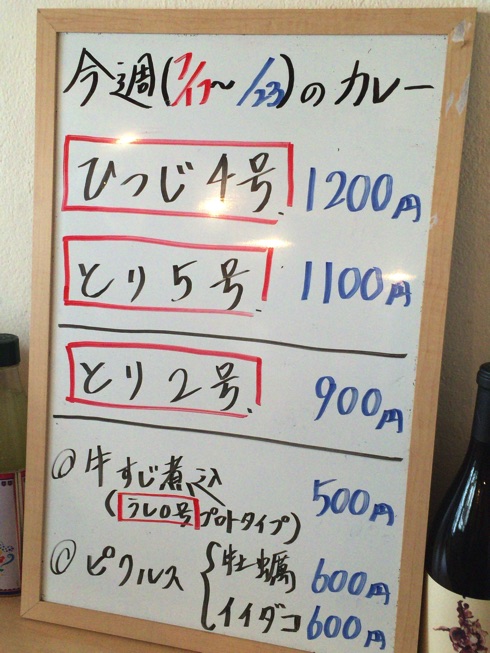 今週(7/17〜/23)のカレー
ひつじ4号. 1200円
とり5号. 1100円
とり2号. 900円
◎牛すじ煮込 500円
(うし0号プロトタイプ)
◎ピクルス{牡蠣 600円
イイダコ 600円